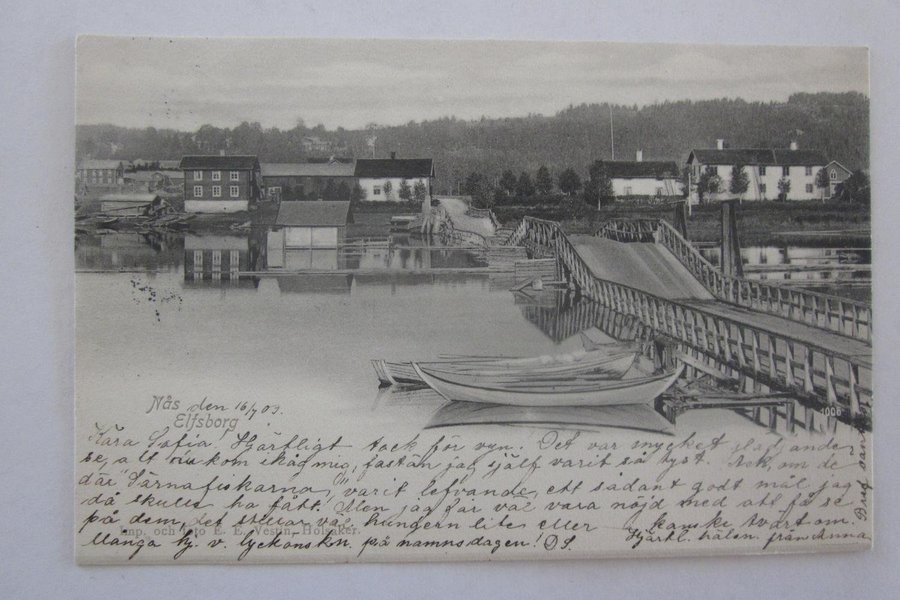 Nås den 16/7 03.
Elfsborg
1006
Kära Sofia! Hjärtligt tack för vyn. Det var mycket glad
se, att nu kom ihåg mig, fastän jag själf varit så tyst. Ack, om de
där "Järnafiskarna" varit lefvande, ett sådant godt mål jag
då skulle ha fått. Men jag får väl vara nöjd med att få se
på dem, det stillar väl hungern lite eller kanske tvärt om.
Imp. och foto E. E. Westin, Holsåker.
Många hj. v. lyckonskn. på namnsdagen! DS. Hjärtl. häls. från Anna